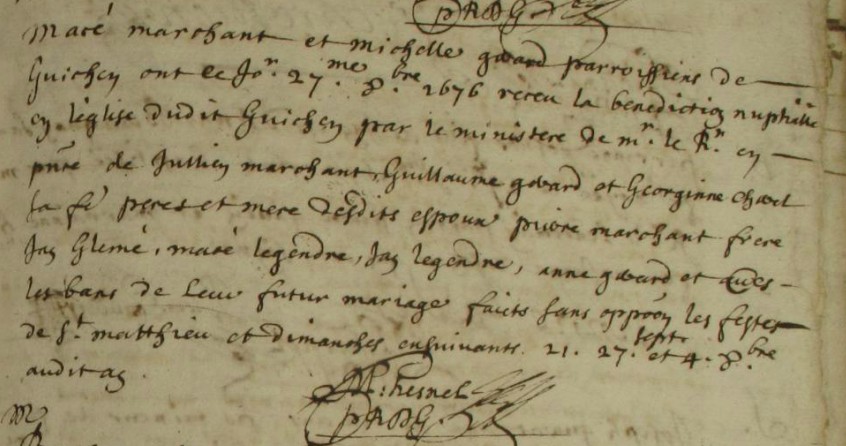 PRDG
Macé marchant et michelle gavard parroissiens de
Guichen ont ce Jor. 27me. 8bre 1676 receu la benediction nuptialle
en leglise dudit Guichen par le ministere de mr. le Rr. en
pnce de Jullien marchant, Guillaume gavard et Georginne
sa fe peres et mere desdits espoux pierre marchant frere
Jan Glemé, macé legendre, Jan legendre, anne gavard et aues
les bans de Leur futur mariage faicts sans oppoon les festes
de St matthieu et dimanches ensuivants 21. 27. sept. et 4. 8bre
audit an.
M: hesnel
PRDG.
M